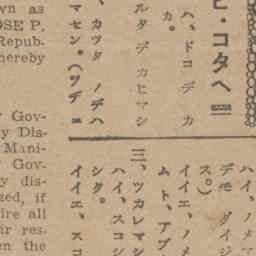 wn as
OSE P.
Repub-
hereby
Gov-
y Dis-
Mani-
Gov-
y dis-
zed, if
ire all
ir res-
en the
ヒ・コタヘ
ハ、ドコ デ カ
カ。
ルタ デ カヒマシ
、カツタ ノデハ
マセン。(ツヅ
ハイ、ノメマ
デモ ダイジ
ス。)
イイエ、ノメ
ムト、アブ
三、ツカレマシ
シタ。
ハイ、スコシ
イイエ、スコ